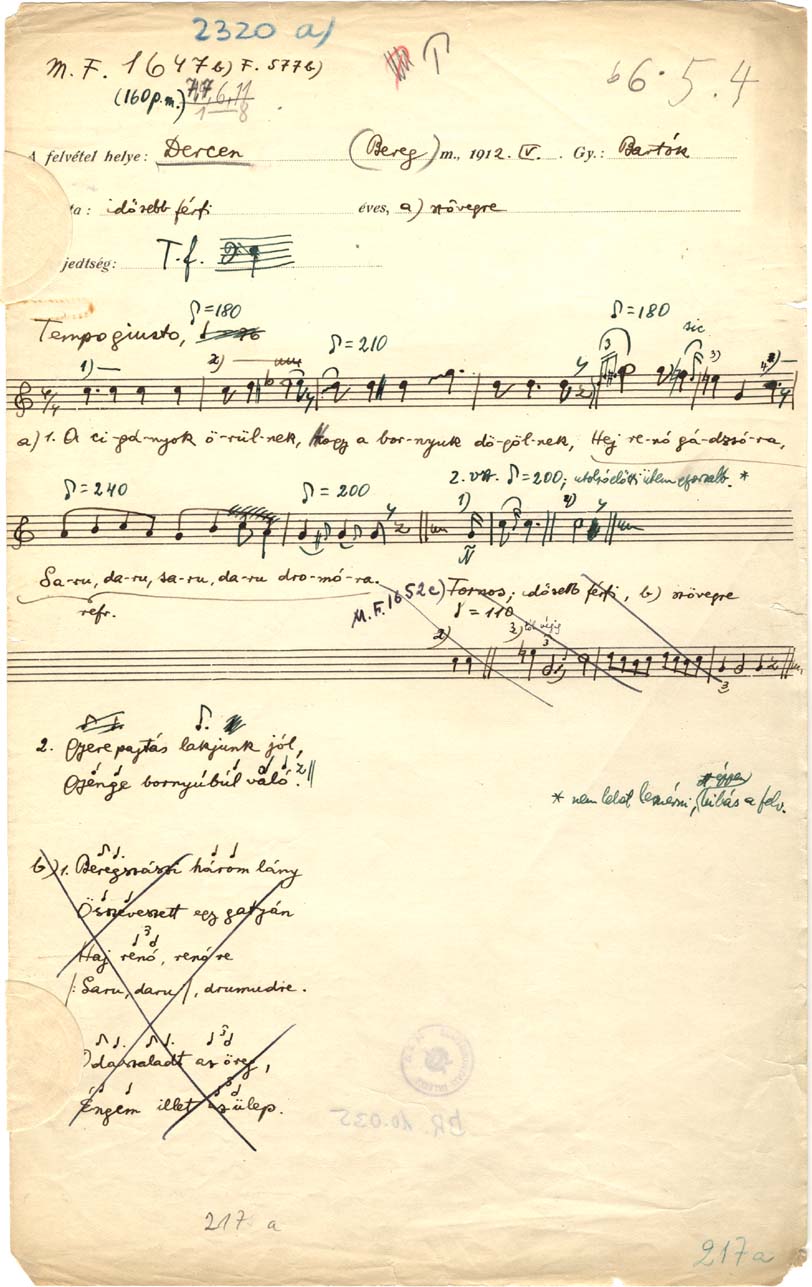 2320 a)
M. F. 1647 b) F. 577 b)
T
b 6. 5. 4
(160 p.m.) 7,7,6,11
1–8
A felvétel helye: Dercen (Bereg) m., 1912. IV. Gy.: Bartók
ta: idősebb férfi éves, a) szövegre
jedtség: T. f.
Tempo giusto, ♪=180
♪=210
♪=180
sic
1) 2) 3) 4)
a) 1. A ci-gá-nyok ö-rül-nek, Hogy a bor-nyuk dö-göl-nek, Hej re-nó gá-dzsó-ra,
♪=240 ♪=200 2. vsz. ♪=200; utolsóelőtti ütem *
Sa-ru, da-ru, sa-ru, da-ru dro-mó-ra.
refr.
M. F. 1652 c) Fornos; idősebb férfi, b) szövegre
♪=110
2) 3)
2. Gyere pajtás lakjunk jól,
Gyenge bornyúbúl való.
* nem lehet lemérni, hibás a felv.
b) 1. Beregszászi három lány
Összeveszett egy gatyán
Haj renó, renóre
|: Saru, daru :|, drumudre.
Odaszaladt az öreg,
Engem illet az ülep.
BR. 10.035
217 a
217 a